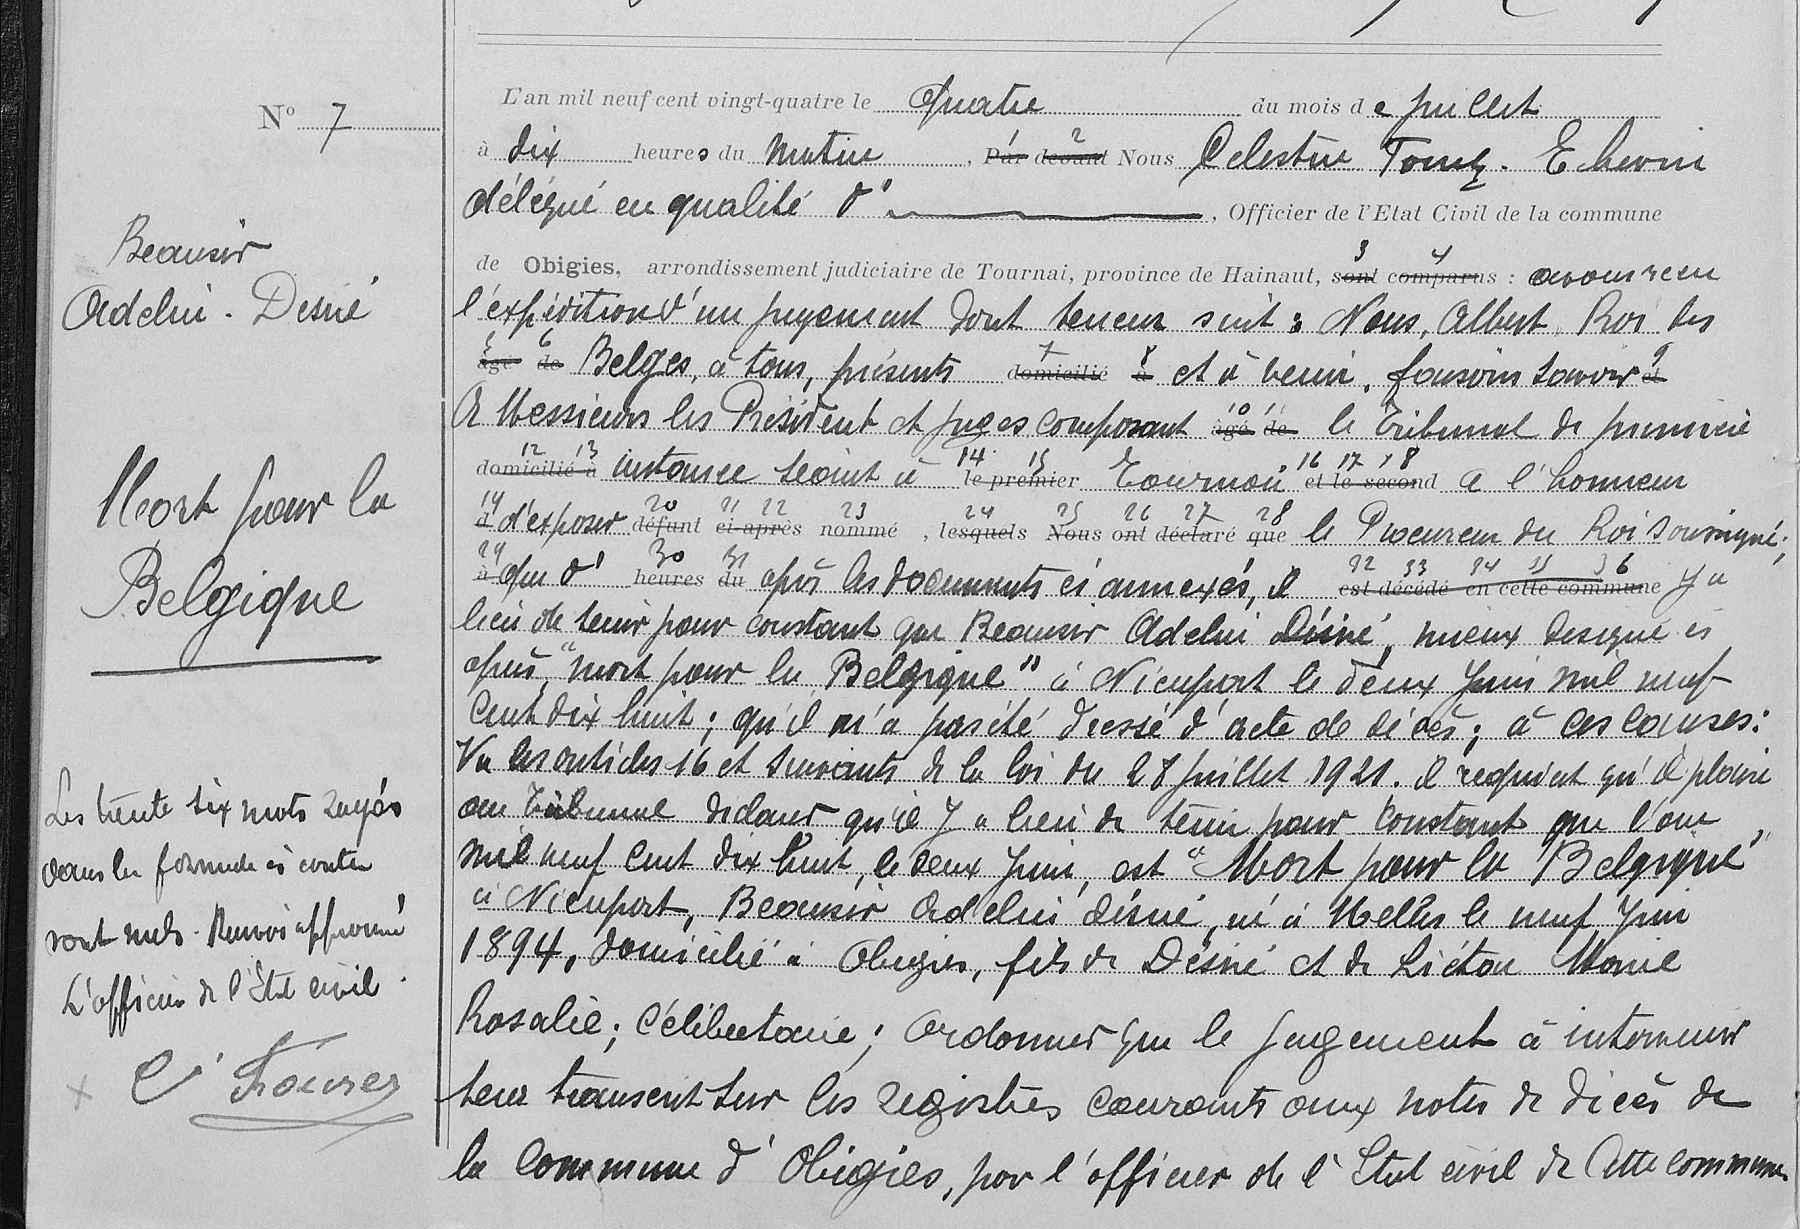 N° 7
Beausir
Adelin. Désiré
Mort pour la
Belgique
Les trente six mots rayés
dans la formule ci contre
sont nuls. Renvoi approuvé
L'officier de l'Etat civil.
L'an mil neuf cent vingt-quatre le Quatre du mois de Juillet
à dix heures du matin, Par devant Nous Célestin Echevin
délégué en qualité d', Officier de l'Etat Civil de la commune
de Obigies, arrondissement judiciaire de Tournai, province de Hainaut, sont comparus : avons reçu
l'expédition d'un jugement dont teneur suit : Nous, Albert, Roi des
agé de Belges, à tous, présents domicilié à et à venir, faisons savoir et
A Messieurs les Président et juges composant âgé de le Tribunal de première
domicilié à instance séant à le premier Tournai et le second a l'honneur
d d'exposer défunt ci-après nommé, lesquels Nous ont déclaré que le Procureur du Roi soussigné;
à que d' heures du après les documents ci annexés, il est décédé en cette commune y a
lieu de tenir pour constant que Beausir Adelin Désiré, mieux désigné ci
après, "mort pour la Belgique" à Nieuport le deux Juin mil neuf
cent dix huit ; qu'il n'a pas été dressé d'acte de décès ; à ces causes :
Vu les articles 16 et suivants de la loi du 28 juillet 1921. il requiert qu'il plaise
au Tribunal déclarer qu'il y a lieu de tenir pour constant que l'an
mil neuf cent dix huit, le deux Juin, est "Mort pour la Belgique"
à Nieuport, Beausir Adelin désiré, né à Melles le neuf Juin
1894, domicilié à Obigies, fils de Désiré et de Liétou Marie
Rosalie ; célibataire ; Ordonner que le jugement à intervenir
sera transcrit sur les registres courants aux notes de décès de
la commune d'Obigies, par l'officier de l'Etat civil de cette commune